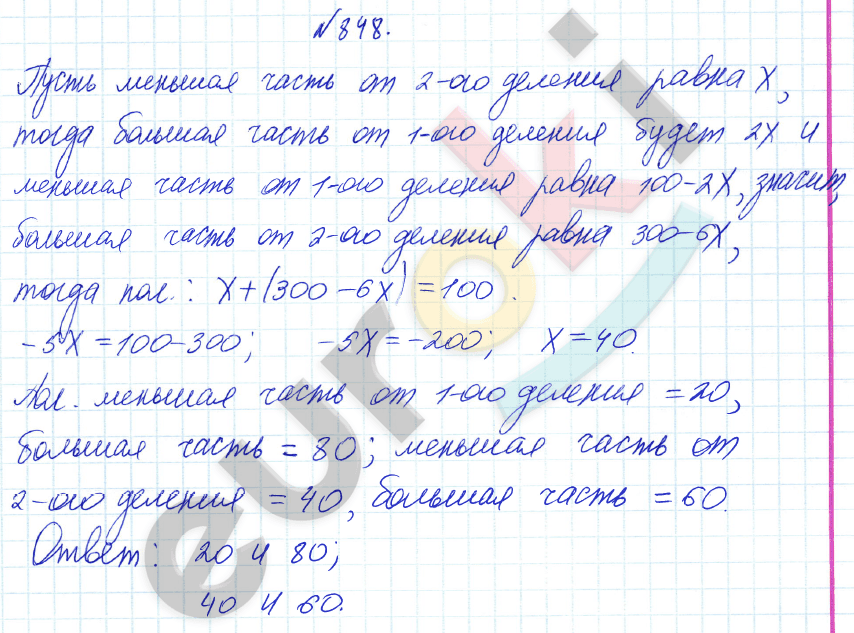 №848.
Пусть меньшая часть от 2-ого деления равна X,
тогда большая часть от 1-ого деления будет 2X и
меньшая часть от 1-ого деления равна 100-2X, значит,
большая часть от 2-ого деления равна 300-6X,
тогда пол.: X+(300-6X)=100.
-5X=100-300; -5X=-200; X=40.
Пол. меньшая часть от 1-ого деления =20,
большая часть = 80; меньшая часть от
2-ого деления =40, большая часть =60.
Ответ: 20 и 80;
40 и 60.
euroki